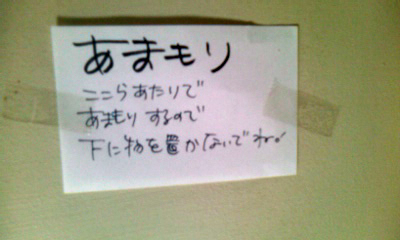 あまもり
ここらあたりで
あまもりするので
下に物を置かないでネ!